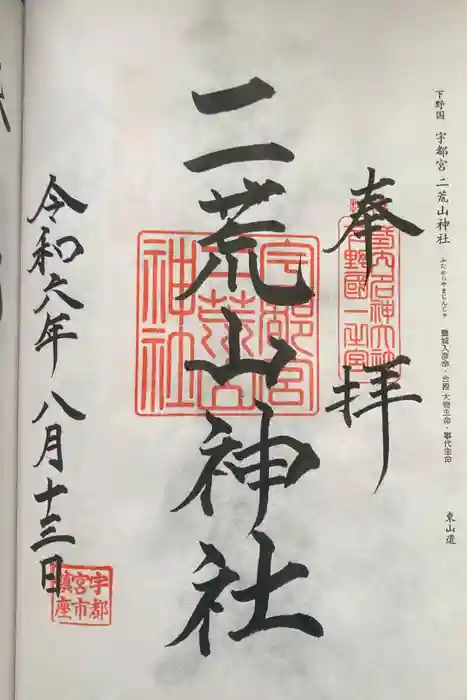 下野国 宇都宮 二荒山神社 ふたあらやまじんじゃ 豊城入彦命・台殿・大物主命・事代主命 東山道
奉拝
二荒山神社
宇都宮
二荒山
神社
令和六年 八月十三日
宇都
宮市
鎮座